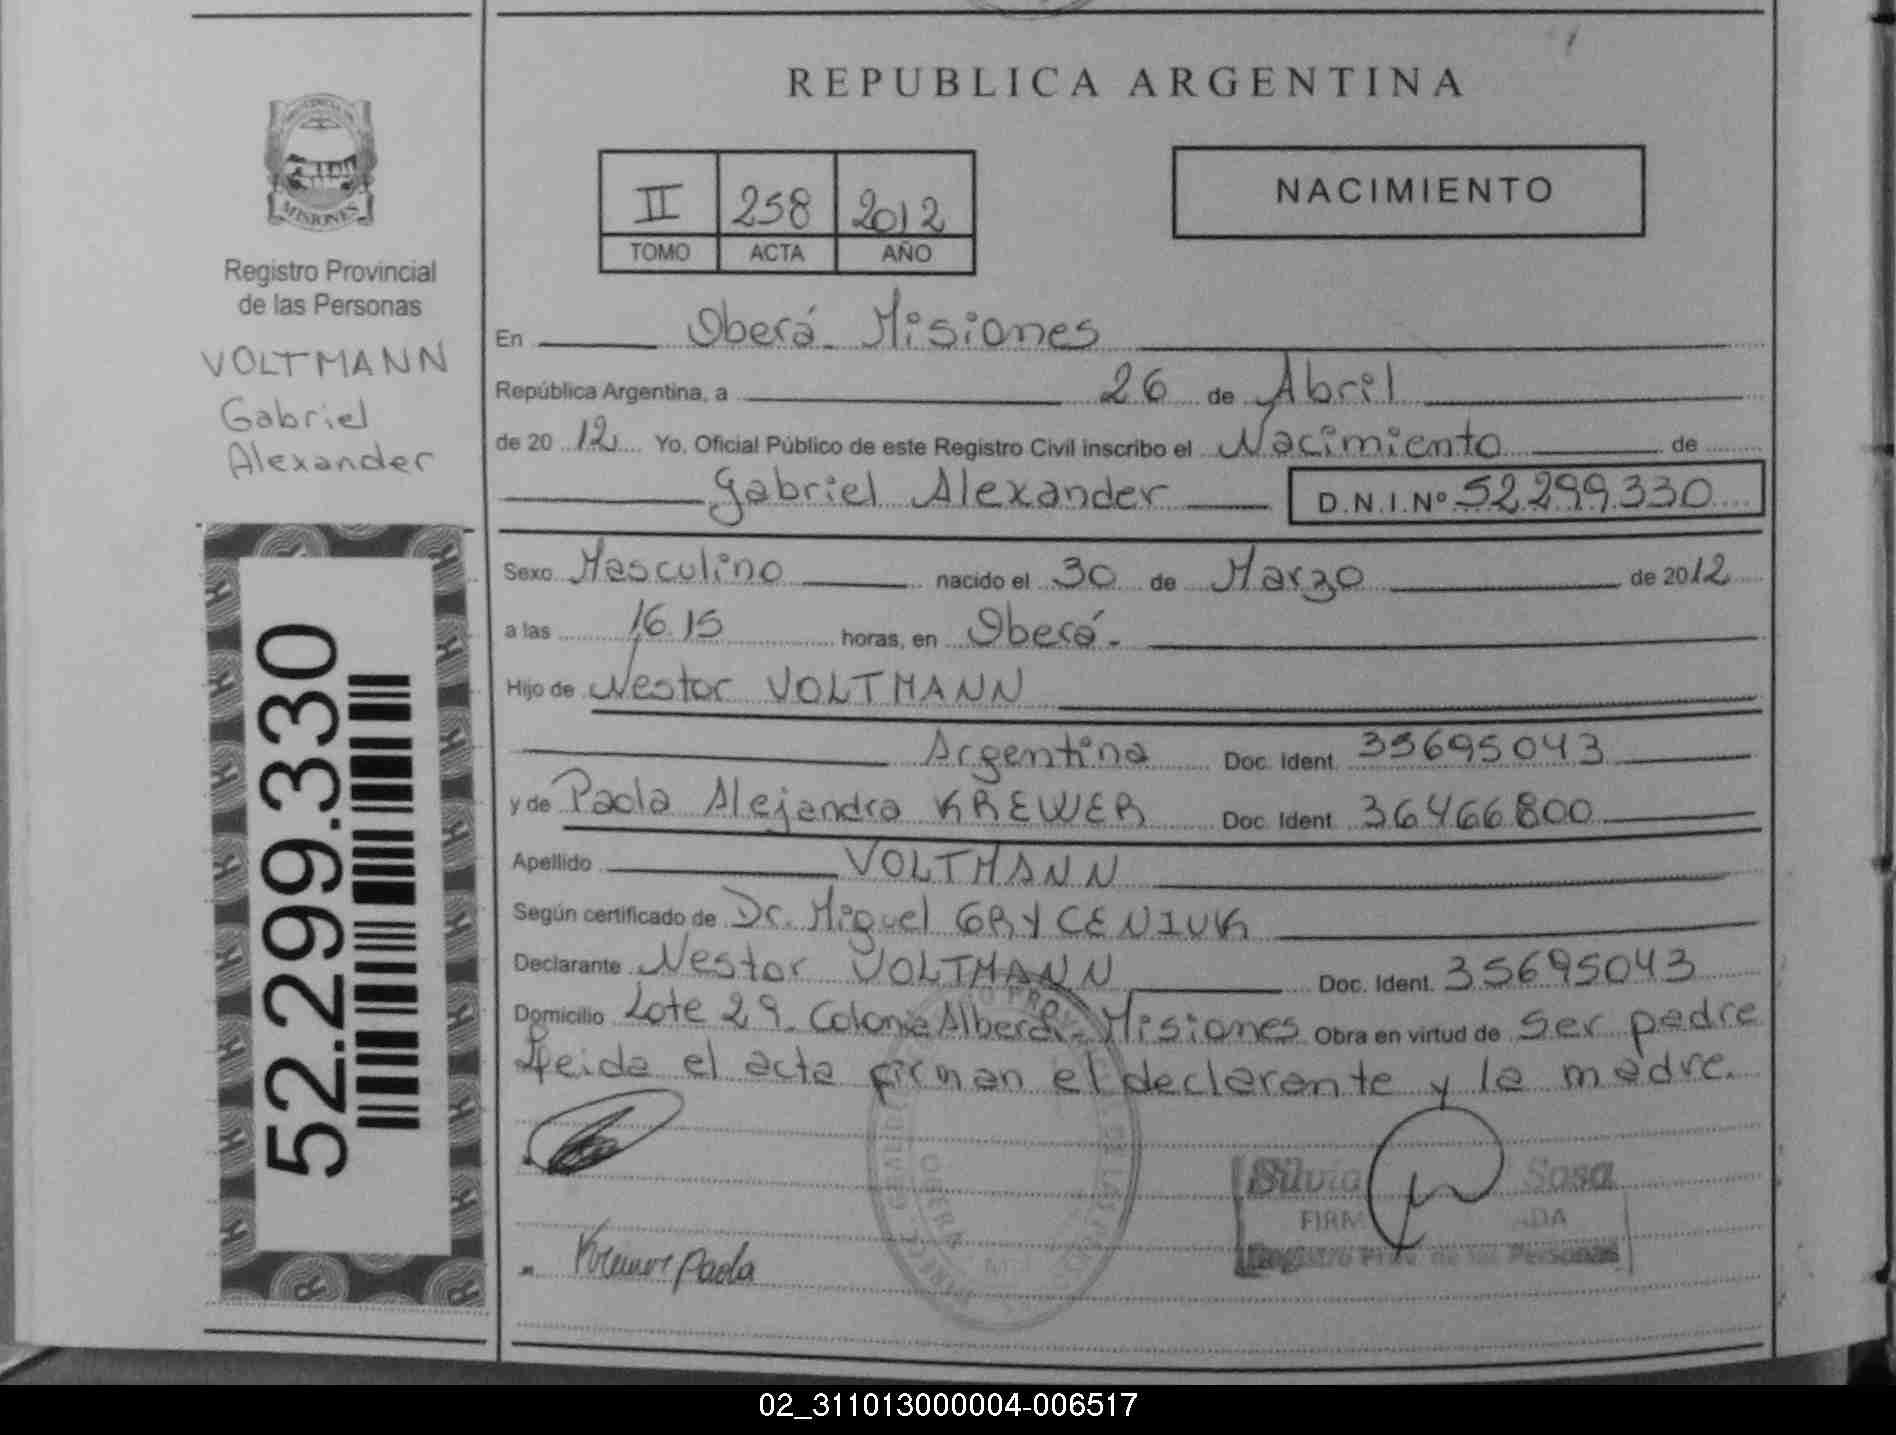 REPUBLICA ARGENTINA
PROVINCIA DE
MISIONES
Registro Provincial
de las Personas
VOLTMANN
Gabriel
Alexander
52.299.330
II 258 2012
TOMO ACTA AÑO
NACIMIENTO
En Oberá - Misiones
República Argentina, a 26 de Abril
de 20 12 Yo, Oficial Público de este Registro Civil inscribo el Nacimiento de
Gabriel Alexander D.N.I.Nº 52.299.330
Sexo Masculino nacido el 30 de Marzo de 2012
a las 16.15 horas, en Oberá -
Hijo de Nestor VOLTMANN
Argentina Doc. Ident. 35695043
y de Paola Alejandra KREWER Doc. Ident. 36466800
Apellido VOLTMANN
Según certificado de Dr. Miguel GRYCENIUK
Declarante Nestor VOLTMANN Doc. Ident. 35695043
Domicilio Lote 29 - Colonia Alberdi - Misiones Obra en virtud de ser padre
Leida el acta firman el declarante y la madre.
Silvia Sosa
FIRM ADA
Registro Prov. de las Personas
Paola
02_311013000004-006517